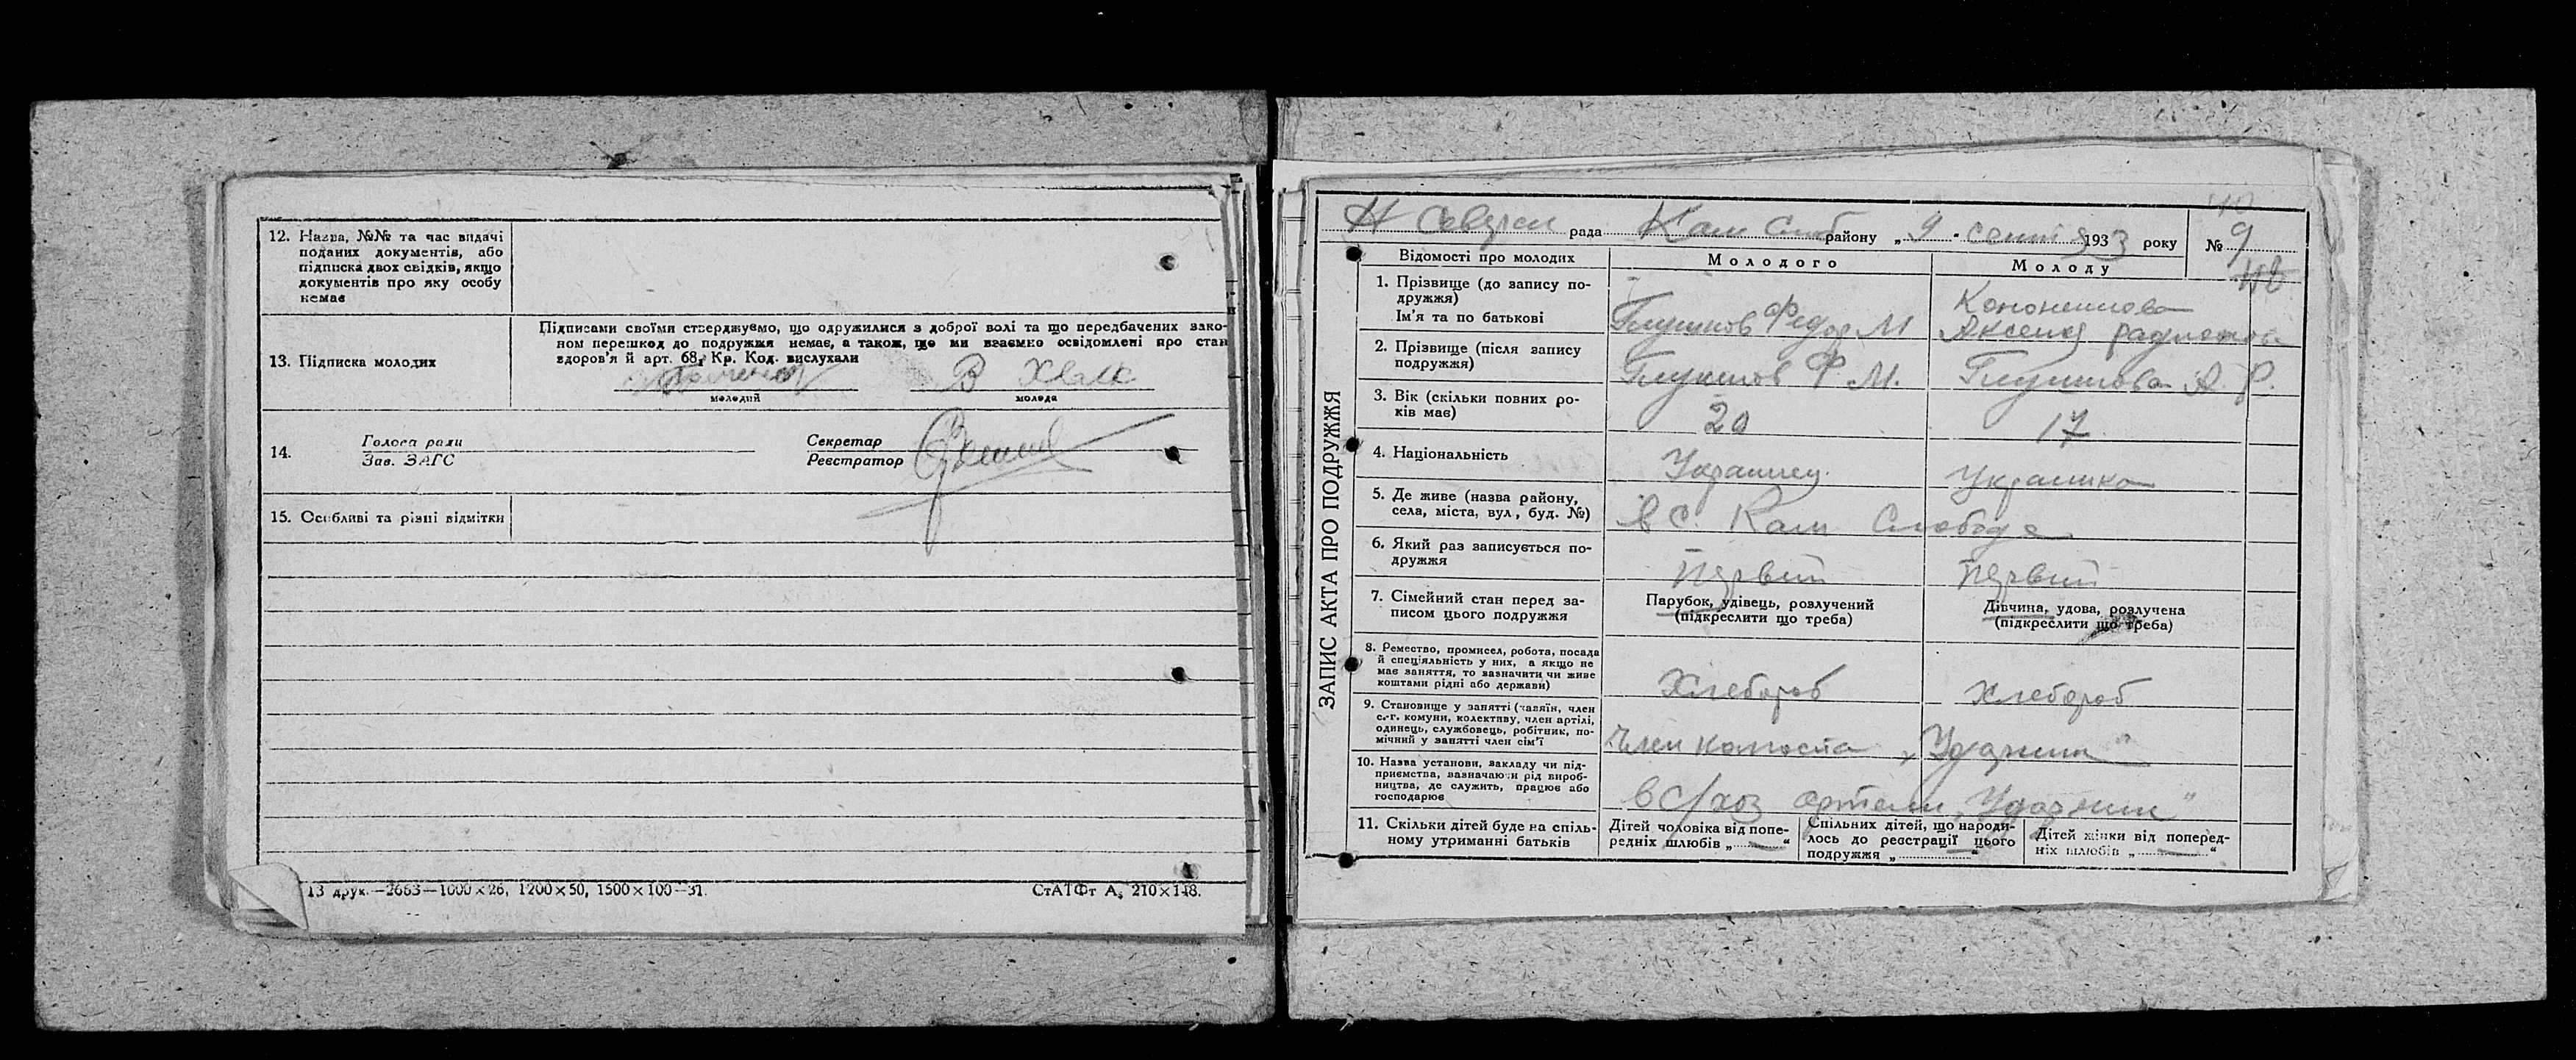 12. Назва, №№ та час видачі
поданих документів, або
підписка двох свідків, якщо
документів про яку особу
немає
13. Підписка молодих
Підписами своїми стверджуємо, що одружилися з доброї волі та що передбачених зако-
ном перешкод до подружжя немає, а також, що ми взаємно освідомлені про стан
здоров'я й арт. 68, Кр. Код. вислухали
молодий
молода
14.
Голова ради
Зав. ЗАГС
Секретар
Реєстратор
15. Особливі та різні відмітки
13 друк.—2663—1000×26, 1200×50, 1500×100—31.
СтАТФт А5 210×148.
ЗАПИС АКТА ПРО ПОДРУЖЖЯ
рада Кам Слоб району „9" 1933 року
№ 9
Відомості про молодих
Молодого
Молоду
1. Прізвище (до запису по-
дружжя)
Ім'я та по батькові
Глушков Федор М
Аксения
2. Прізвище (після запису
подружжя)
Глушков Ф М.
Глушкова А. Р.
3. Вік (скільки повних ро-
ків має)
20
17
4. Національність
Украинец
Украинка
5. Де живе (назва району,
села, міста, вул, буд. №)
в с. Кам Слободе
6. Який раз записується по-
дружжя
Первий
Первий
7. Сімейний стан перед за-
писом цього подружжя
Парубок, удівець, розлучений
(підкреслити що треба)
Дівчина, удова, розлучена
(підкреслити що треба)
8. Ремество, промисел, робота, посада
й спеціяльність у них, а якщо не
має заняття, то зазначити чи живе
коштами рідні або держави)
Хлебороб
Хлебороб
9. Становище у занятті (хазяїн, член
с.-г. комуни, колективу, член артілі,
одинець, службовець, робітник, по-
мічний у занятті член сім'ї
Член колхоспа „Ударник"
10. Назва установи, закладу чи під-
приємства, зазначаючи рід вироб-
ництва, де служить, працює або
господарює
в с/хоз артели „Ударник"
11. Скільки дітей буде на спіль-
ному утриманні батьків
Дітей чоловіка від попе-
редніх шлюбів „—"
Спільних дітей, що народи-
лось до реєстрації цього
подружжя „—"
Дітей жінки від поперед-
ніх шлюбів „—"